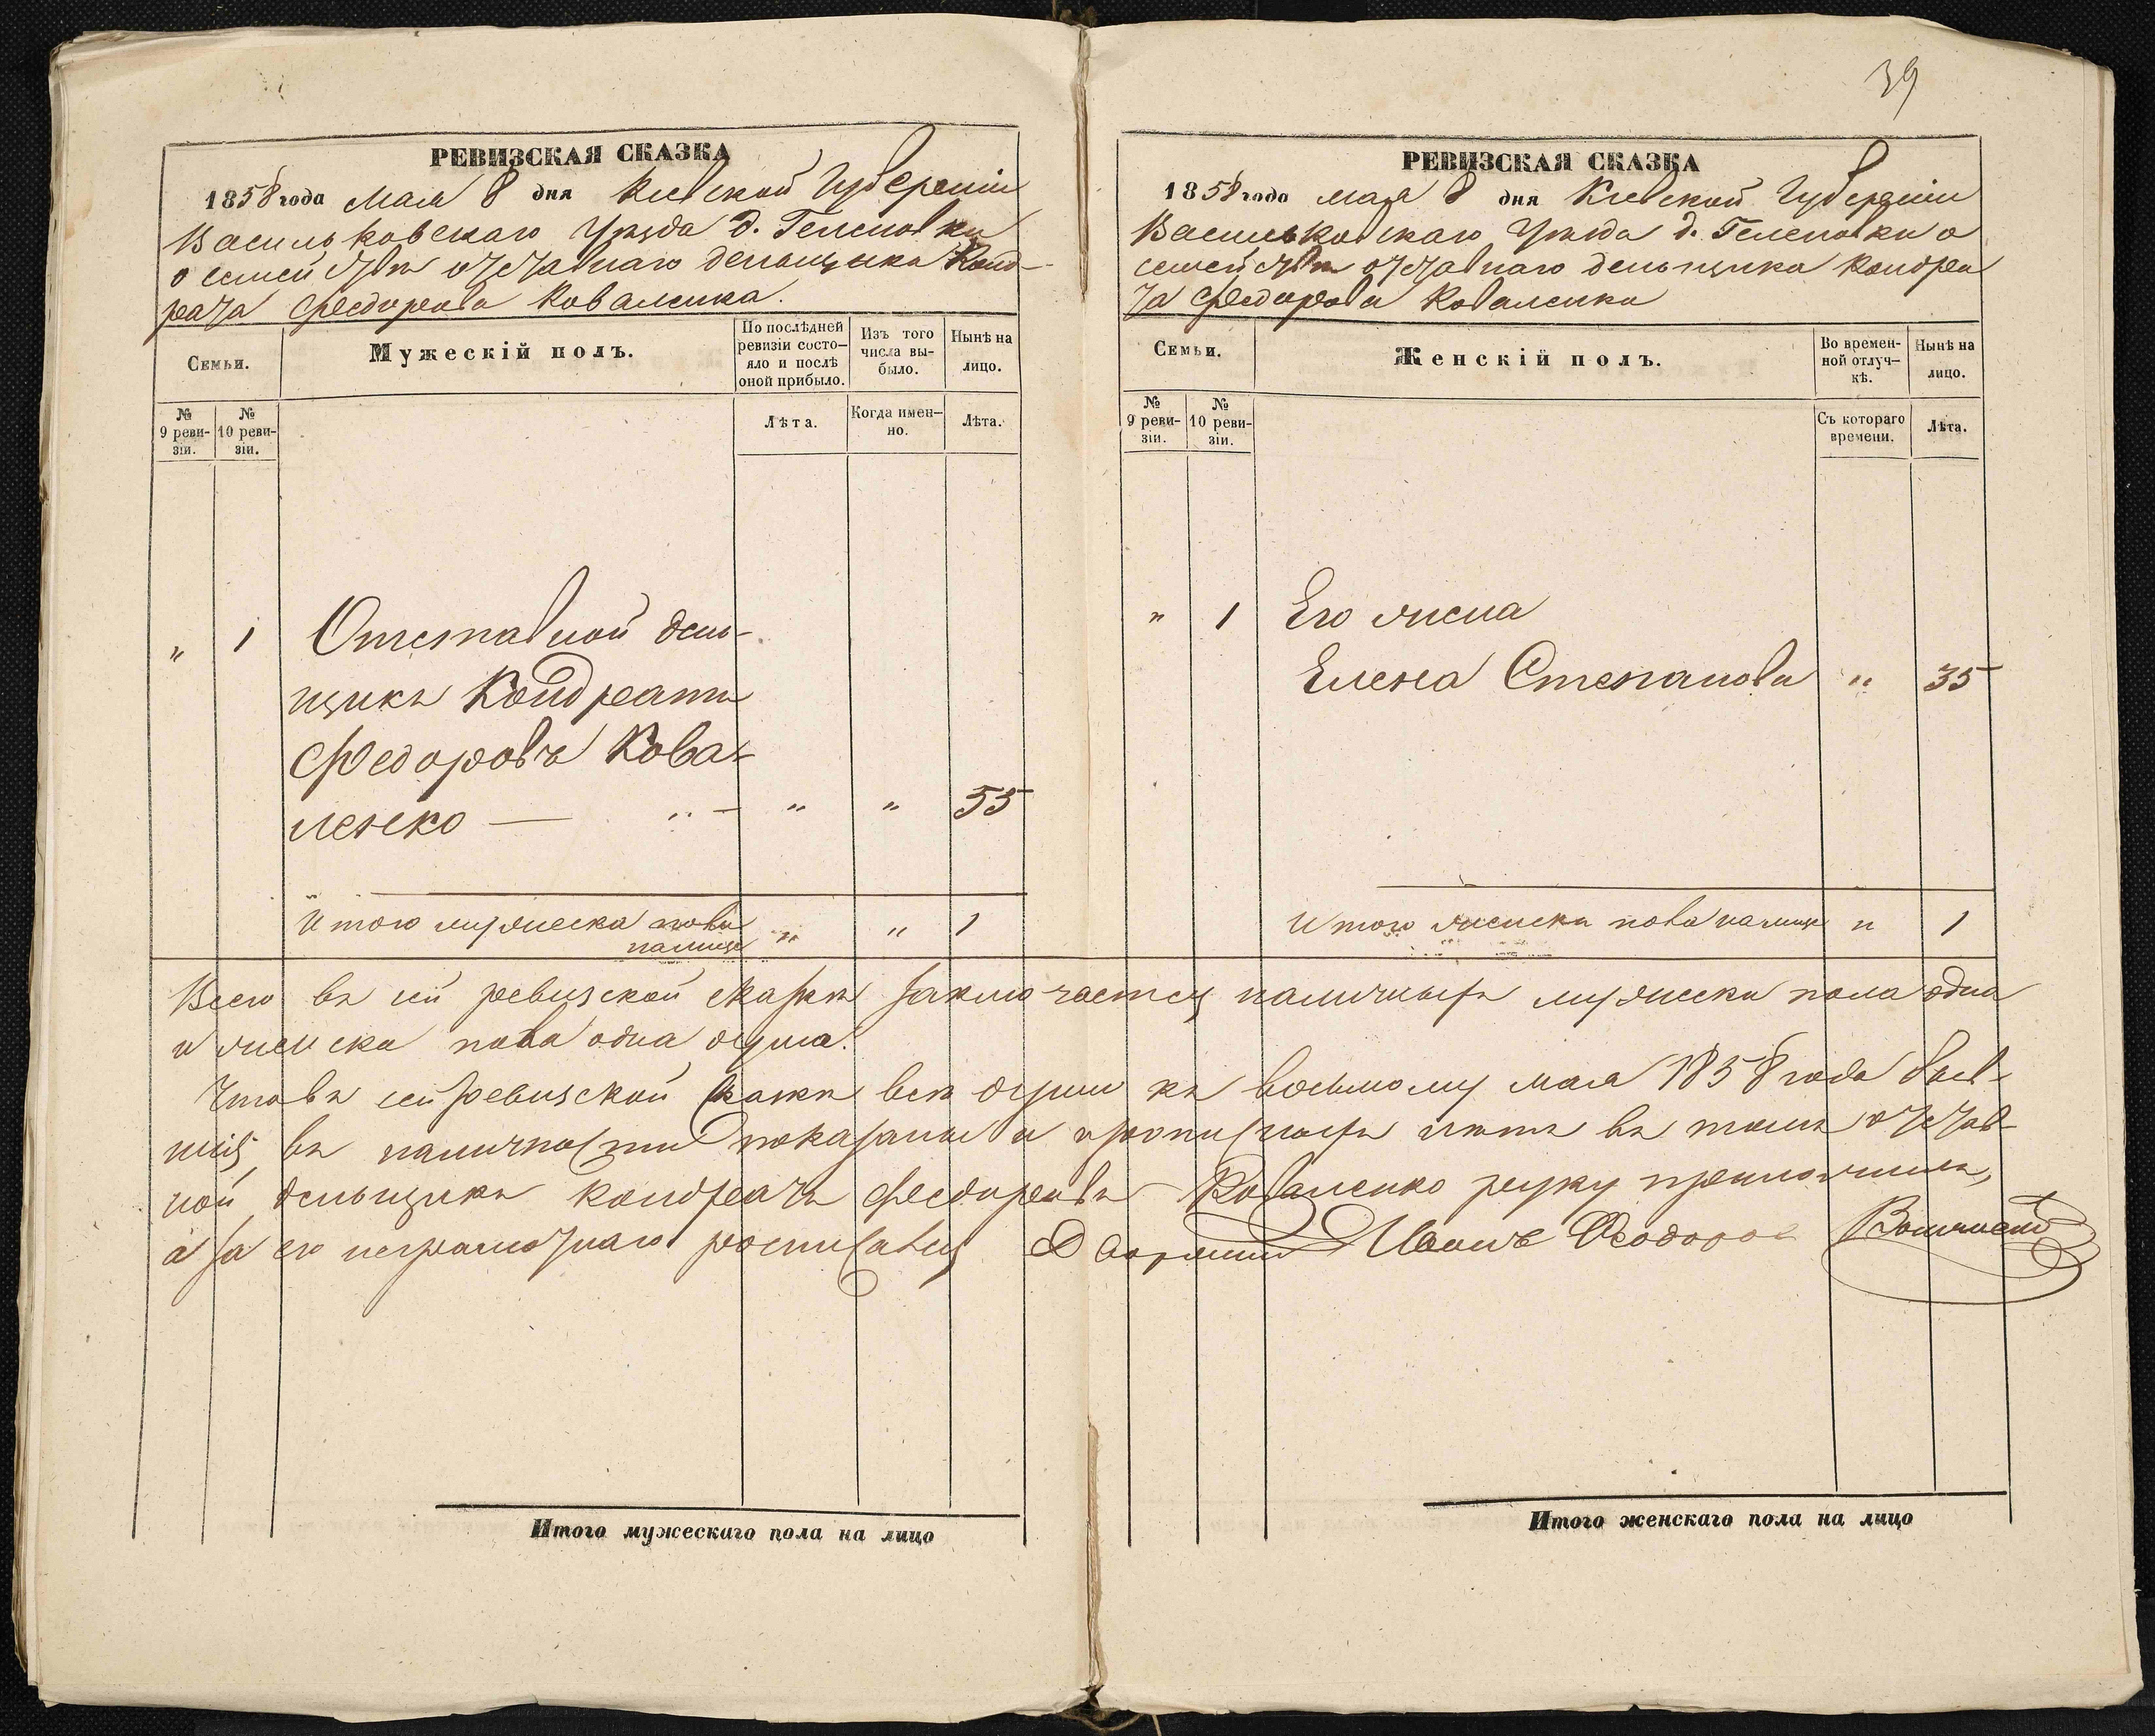 39
РЕВИЗСКАЯ СКАЗКА
1858 года Мая 8 дня Кіевской Губерніи
Васильковскаго Уѣзда д. Геленовки
о семействѣ отставнаго деньщика Конд-
рата Федорова Коваленка.
Семьи.
Мужескій полъ.
По послѣдней ревизіи состо-яло и послѣ оной прибыло.
Изъ того числа вы-было.
Нынѣ на лицо.
№ 9 реви-зіи.
№ 10 реви-зіи.
Лѣта.
Когда имен-но.
Лѣта.
„ 1 Отставной день-
щикъ Кондратъ
Федоровъ Кова-
ленко — „ — „ „ 55
Итого мужеска пола
налицо „ „ 1
РЕВИЗСКАЯ СКАЗКА
1858 года мая 8 дня Кіевской Губерніи
Васильковскаго Уѣзда д. Геленовки о
семействѣ отставнаго деньщика Кондра
та Федорова Коваленка
Семьи.
Женскій полъ.
Во времен-ной отлуч-кѣ.
Нынѣ на лицо.
№ 9 реви-зіи.
№ 10 реви-зіи.
Съ котораго времени.
Лѣта.
„ 1 Его жена
Елена Степанова „ 35
Итого женска пола налицо „ 1
Всего въ сей ревизской сказкѣ заключается наличныхъ мужеска пола одна
и женска пола одна душа.
Что въ сей ревизской сказкѣ всѣ души къ восьмому мая 1858 года быв-
шія въ наличности показаны и прописныхъ нѣтъ въ томъ отстав-
ной деньщикъ Кондратъ Федоровъ Коваленко руку приложилъ,
а за его неграмотнаго росписался Дворянинъ Иванъ Феодоров
Итого мужескаго пола на лицо
Итого женскаго пола на лицо